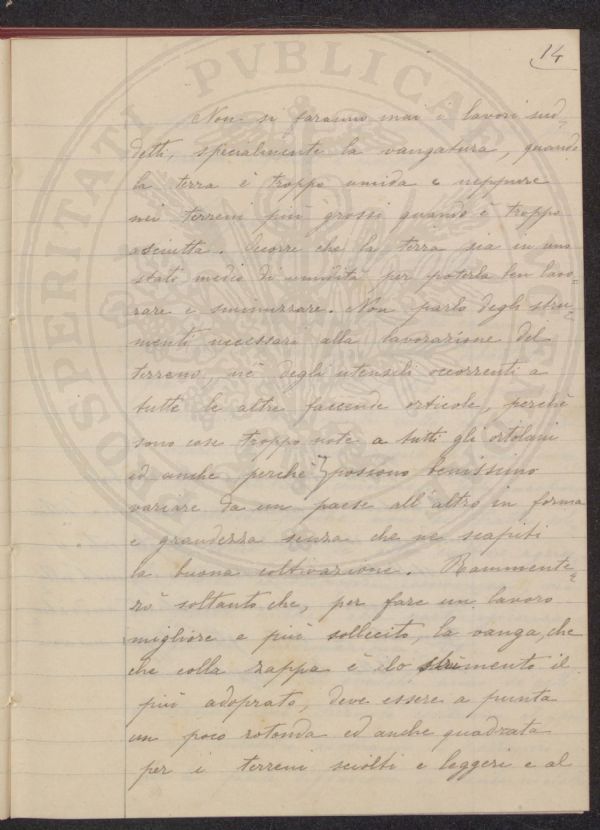 14
Non si faranno mai i lavori sud=
detti, specialmente la vangatura, quando
la terra è troppo umida e neppure
nei terreni più grossi quando è troppo
asciutta. Occorre che la terra sia in uno
stato medio di umidità per poterla ben lavo=
rare e sminuzzare. Non parlo degli stru=
menti necessari alla lavorazione del
terreno, nè degli utensili occorrenti a
tutte le altre faccende orticole, perchè
sono cose troppo note a tutti gli ortolani
ed anche perchè possono benissimo
variare da un paese all'altro in forma
e grandezza senza che ne scapiti
la buona coltivazione. Rammente=
rò soltanto che, per fare un lavoro
migliore e più sollecito, la vanga, che
che colla zappa è lo strumento il
più adoprato, deve essere a punta
un poco rotonda ed anche quadrata
per i terreni sciolti e leggeri e al
PROSPERITATI PVBLICAE